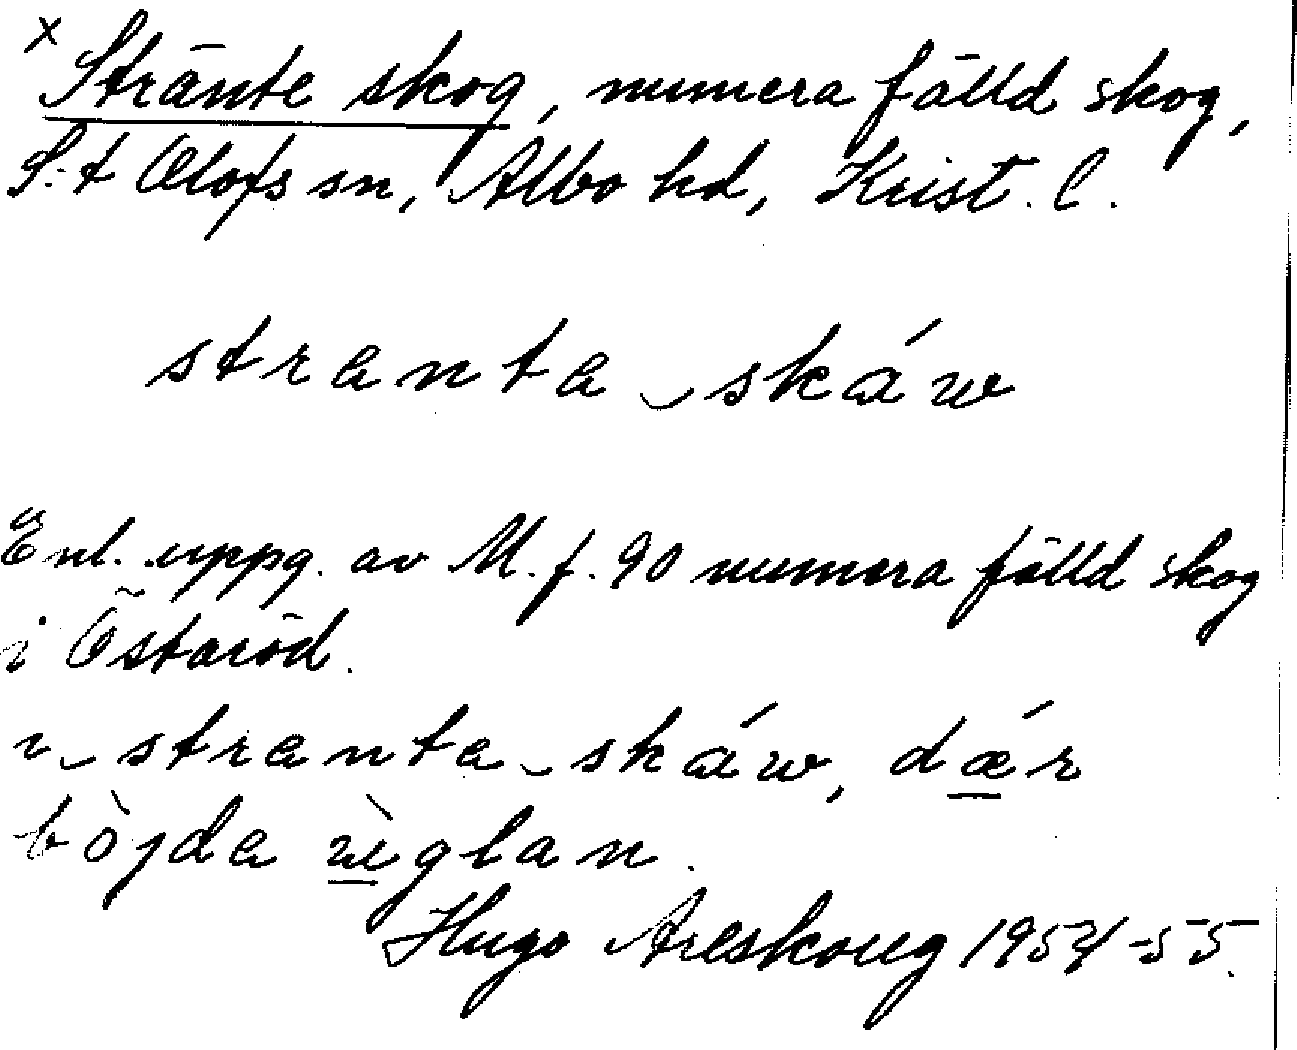 x Stränte skog, numera fälld skog,
S:t Olofs sn, Albo hd, Krist. l.
stranta ‿ skáw
Enl. uppg. av M. f. 90 numera fälld skog
i Östaröd.
i ‿ stranta ‿ skáw, dǽr
bòjda ùglan.
Hugo Areskoug 1954-55.